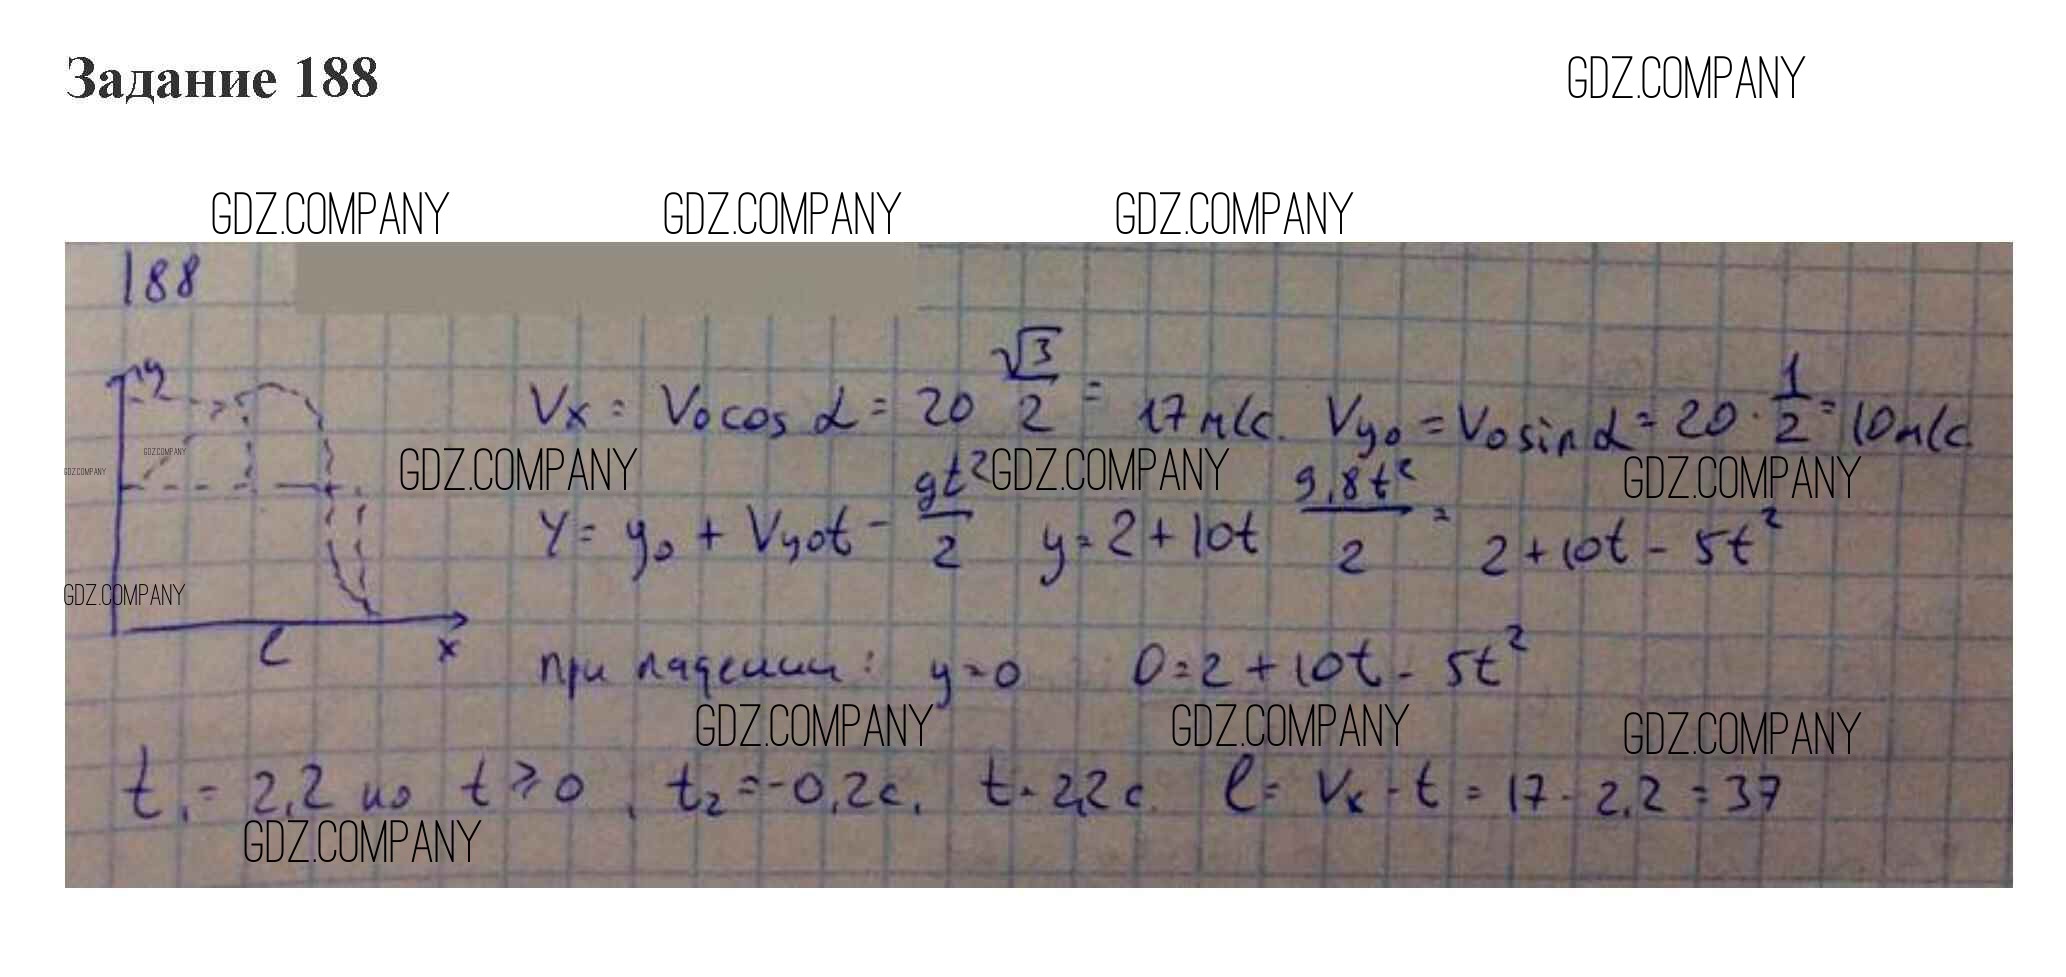 Задание 188
GDZ.COMPANY
GDZ.COMPANY GDZ.COMPANY GDZ.COMPANY
188
y
Vx = V0 cos α = 20 √3/2 = 17 м/с. Vy0 = V0 sin α = 20 · 1/2 = 10 м/с
GDZ.COMPANY
GDZ.COMPANY GDZ.COMPANY GDZ.COMPANY GDZ.COMPANY
Y = y0 + Vy0t - gt²/2 y = 2 + 10t 9,8t²/2 = 2 + 10t - 5t²
GDZ.COMPANY
l x
при падении: y = 0 0 = 2 + 10t - 5t²
GDZ.COMPANY GDZ.COMPANY GDZ.COMPANY
t1 = 2,2 но t ≥ 0, t2 = -0,2 с. t = 2,2 с. l = Vx · t = 17 · 2,2 = 37
GDZ.COMPANY